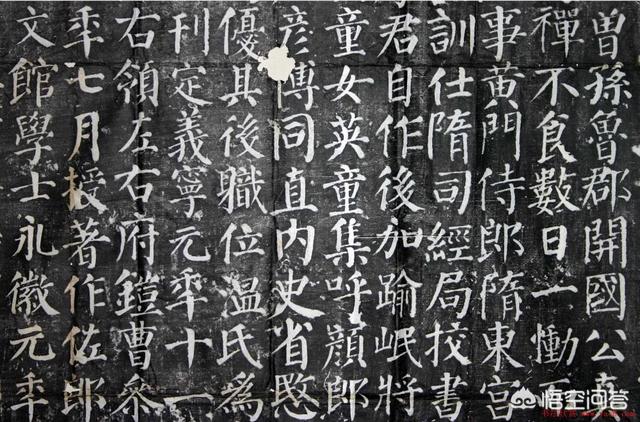 曾孫魯郡開國公
禪不食數日一慟
事黃門侍郎隋東宮
訓仕隋司經局挍書
君自作後加踰岷將
童女英童集呼顏郎
彥博同直內史省愍
優其後職位温氏為
刊定義寧元秊十一
右領左右府鎧曹參
秊七月授著作佐郎
文館學士永徽元秊
悟空问答